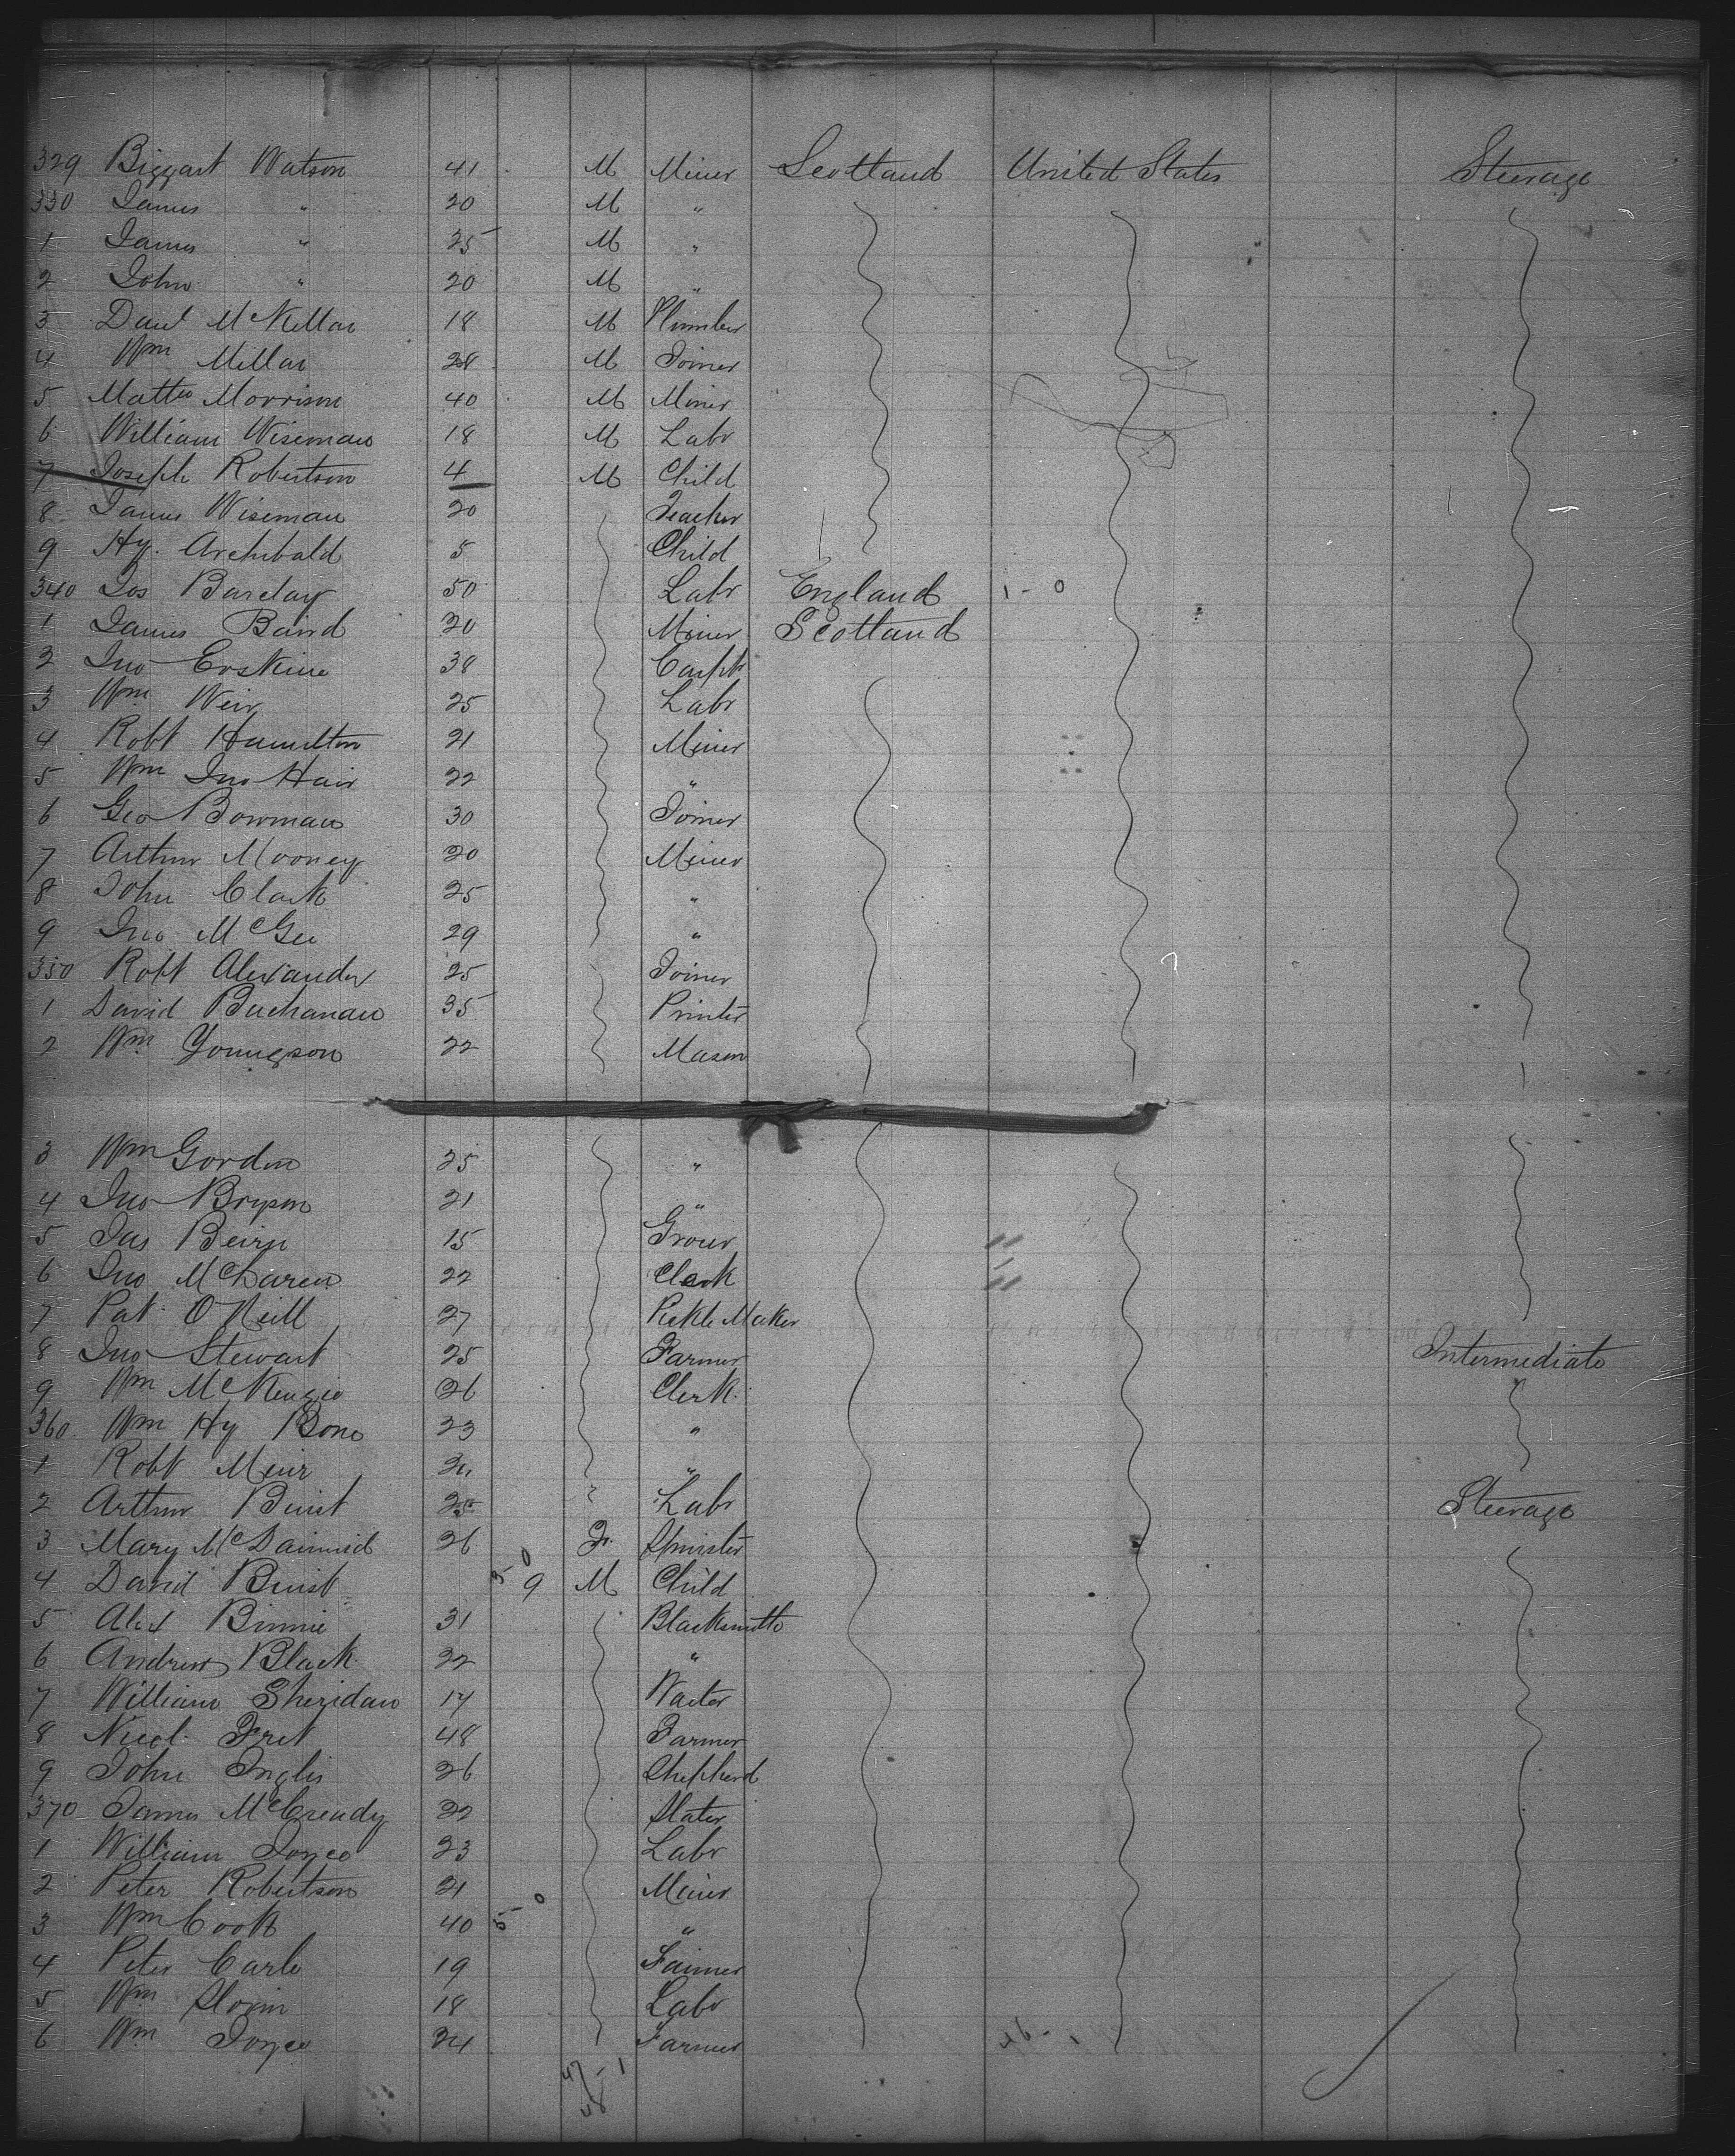 329 Biggart Watson 41 M Miner Scotland United States Steerage
330 James " 20 M "
1 James " 25 M "
2 John " 20 M "
3 Danl McKellar 18 M Plumber
4 Wm Millar 28 M Joiner
5 Matthw Morrison 40 M Miner
6 William Wiseman 18 M Labr
7 Joseph Robertson 4 M Child
8 James Wiseman 20 Teacher
9 Hy. Archibald 5 Child
340 Jos Barclay 50 Labr England 1 - 0
1 James Baird 20 Miner Scotland
2 Jno Erskine 38 Carpt
3 Wm Weir 25 Labr
4 Robt Hamilton 21 Miner
5 Wm Jno Hair 22 "
6 Geo Bowman 30 Joiner
7 Arthur Mooney 20 Miner
8 John Clark 25 "
9 Jno McGee 29 "
350 Robt Alexander 25 Joiner
1 David Buchanan 35 Printer
2 Wm Youngson 22 Mason
3 Wm Gordon 25 "
4 Jno Bryson 21 "
5 Jas 15 Grocer
6 Jno McLaren 22 Clerk
7 Pat O'Neill 27 Pickle Maker
8 Jno Stewart 25 Farmer Intermediate
9 Wm McKenzie 26 Clerk
360 Wm Hy Bone 23 "
1 Robt Muir "
2 Arthur Buist 25 Labr Steerage
3 Mary McDairmid 26 F. Spinster
4 David Buist 9 M Child
5 Alex Binnie 31 Blacksmith
6 Andrew Black 22 "
7 William Sheridan 17 Waiter
8 Nicol 48 Farmer
9 John Inglis 26 Shepherd
370 James McCready 22 Slater
1 William Joyce 23 Labr
2 Peter Robertson 21 Miner
3 Wm Cook 40 "
4 Peter Carle 19 Farmer
5 Wm 18 Labr
6 Wm Joyce 24 Farmer